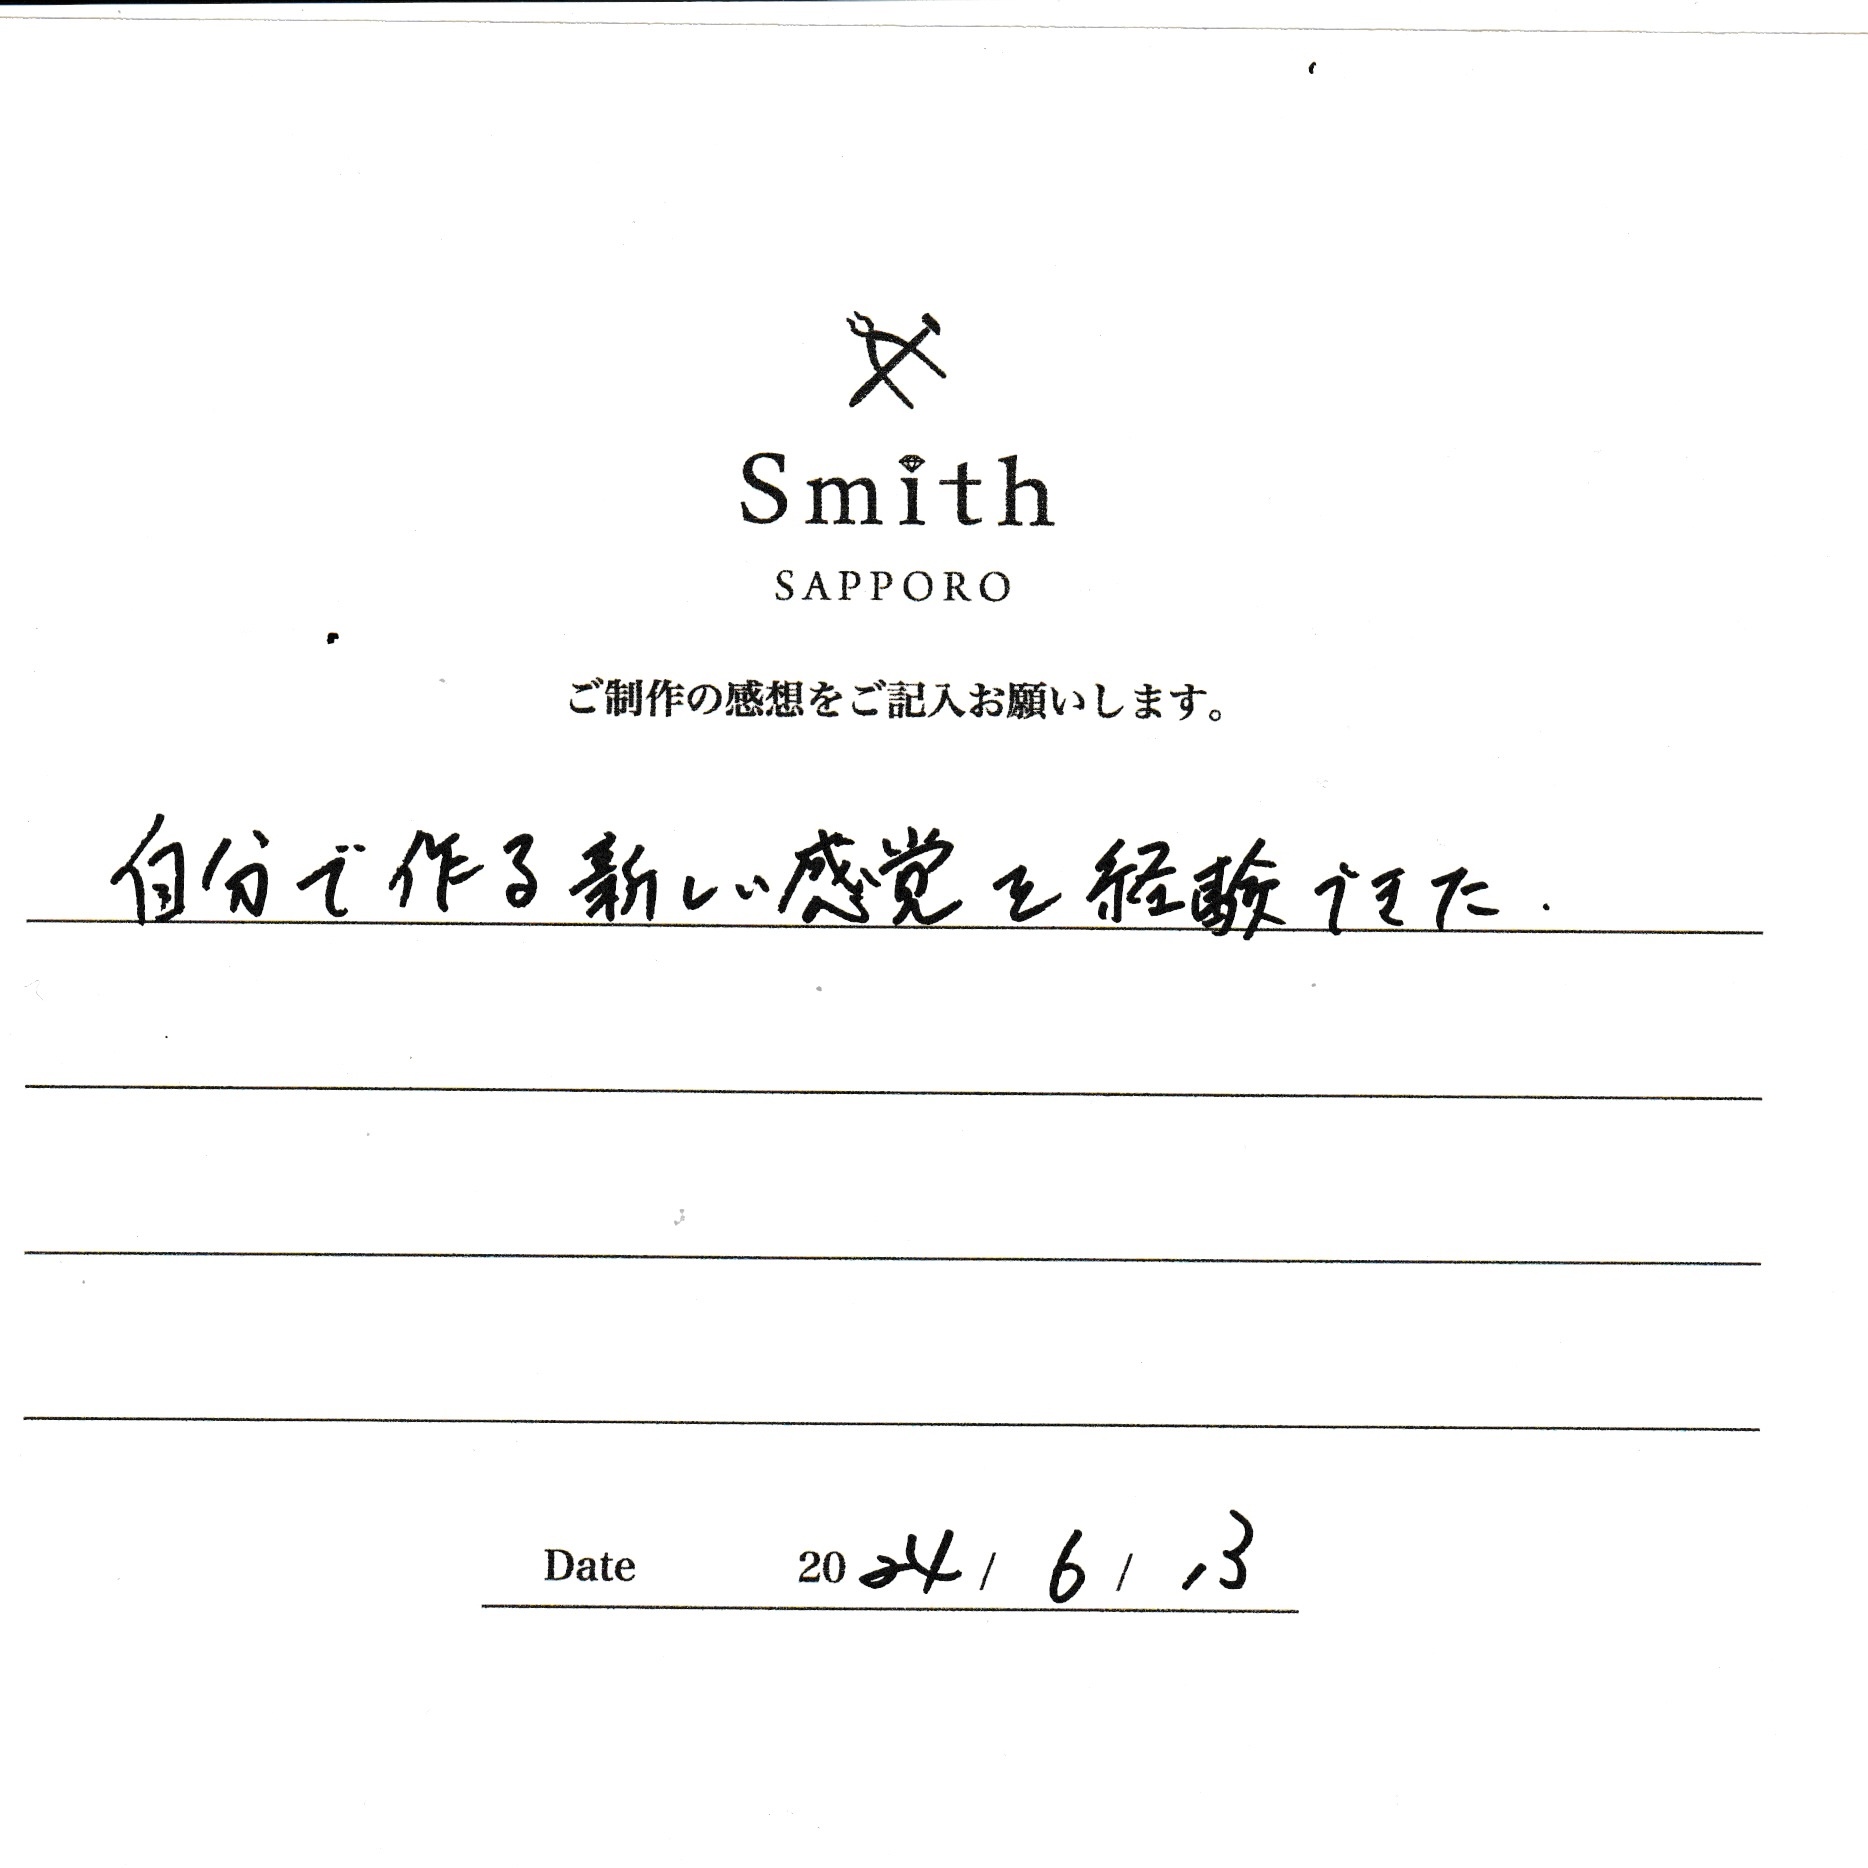 Smith
SAPPORO
ご制作の感想をご記入お願いします。
自分で作る新しい感覚を経験できた.
Date 2024/ 6/ 13